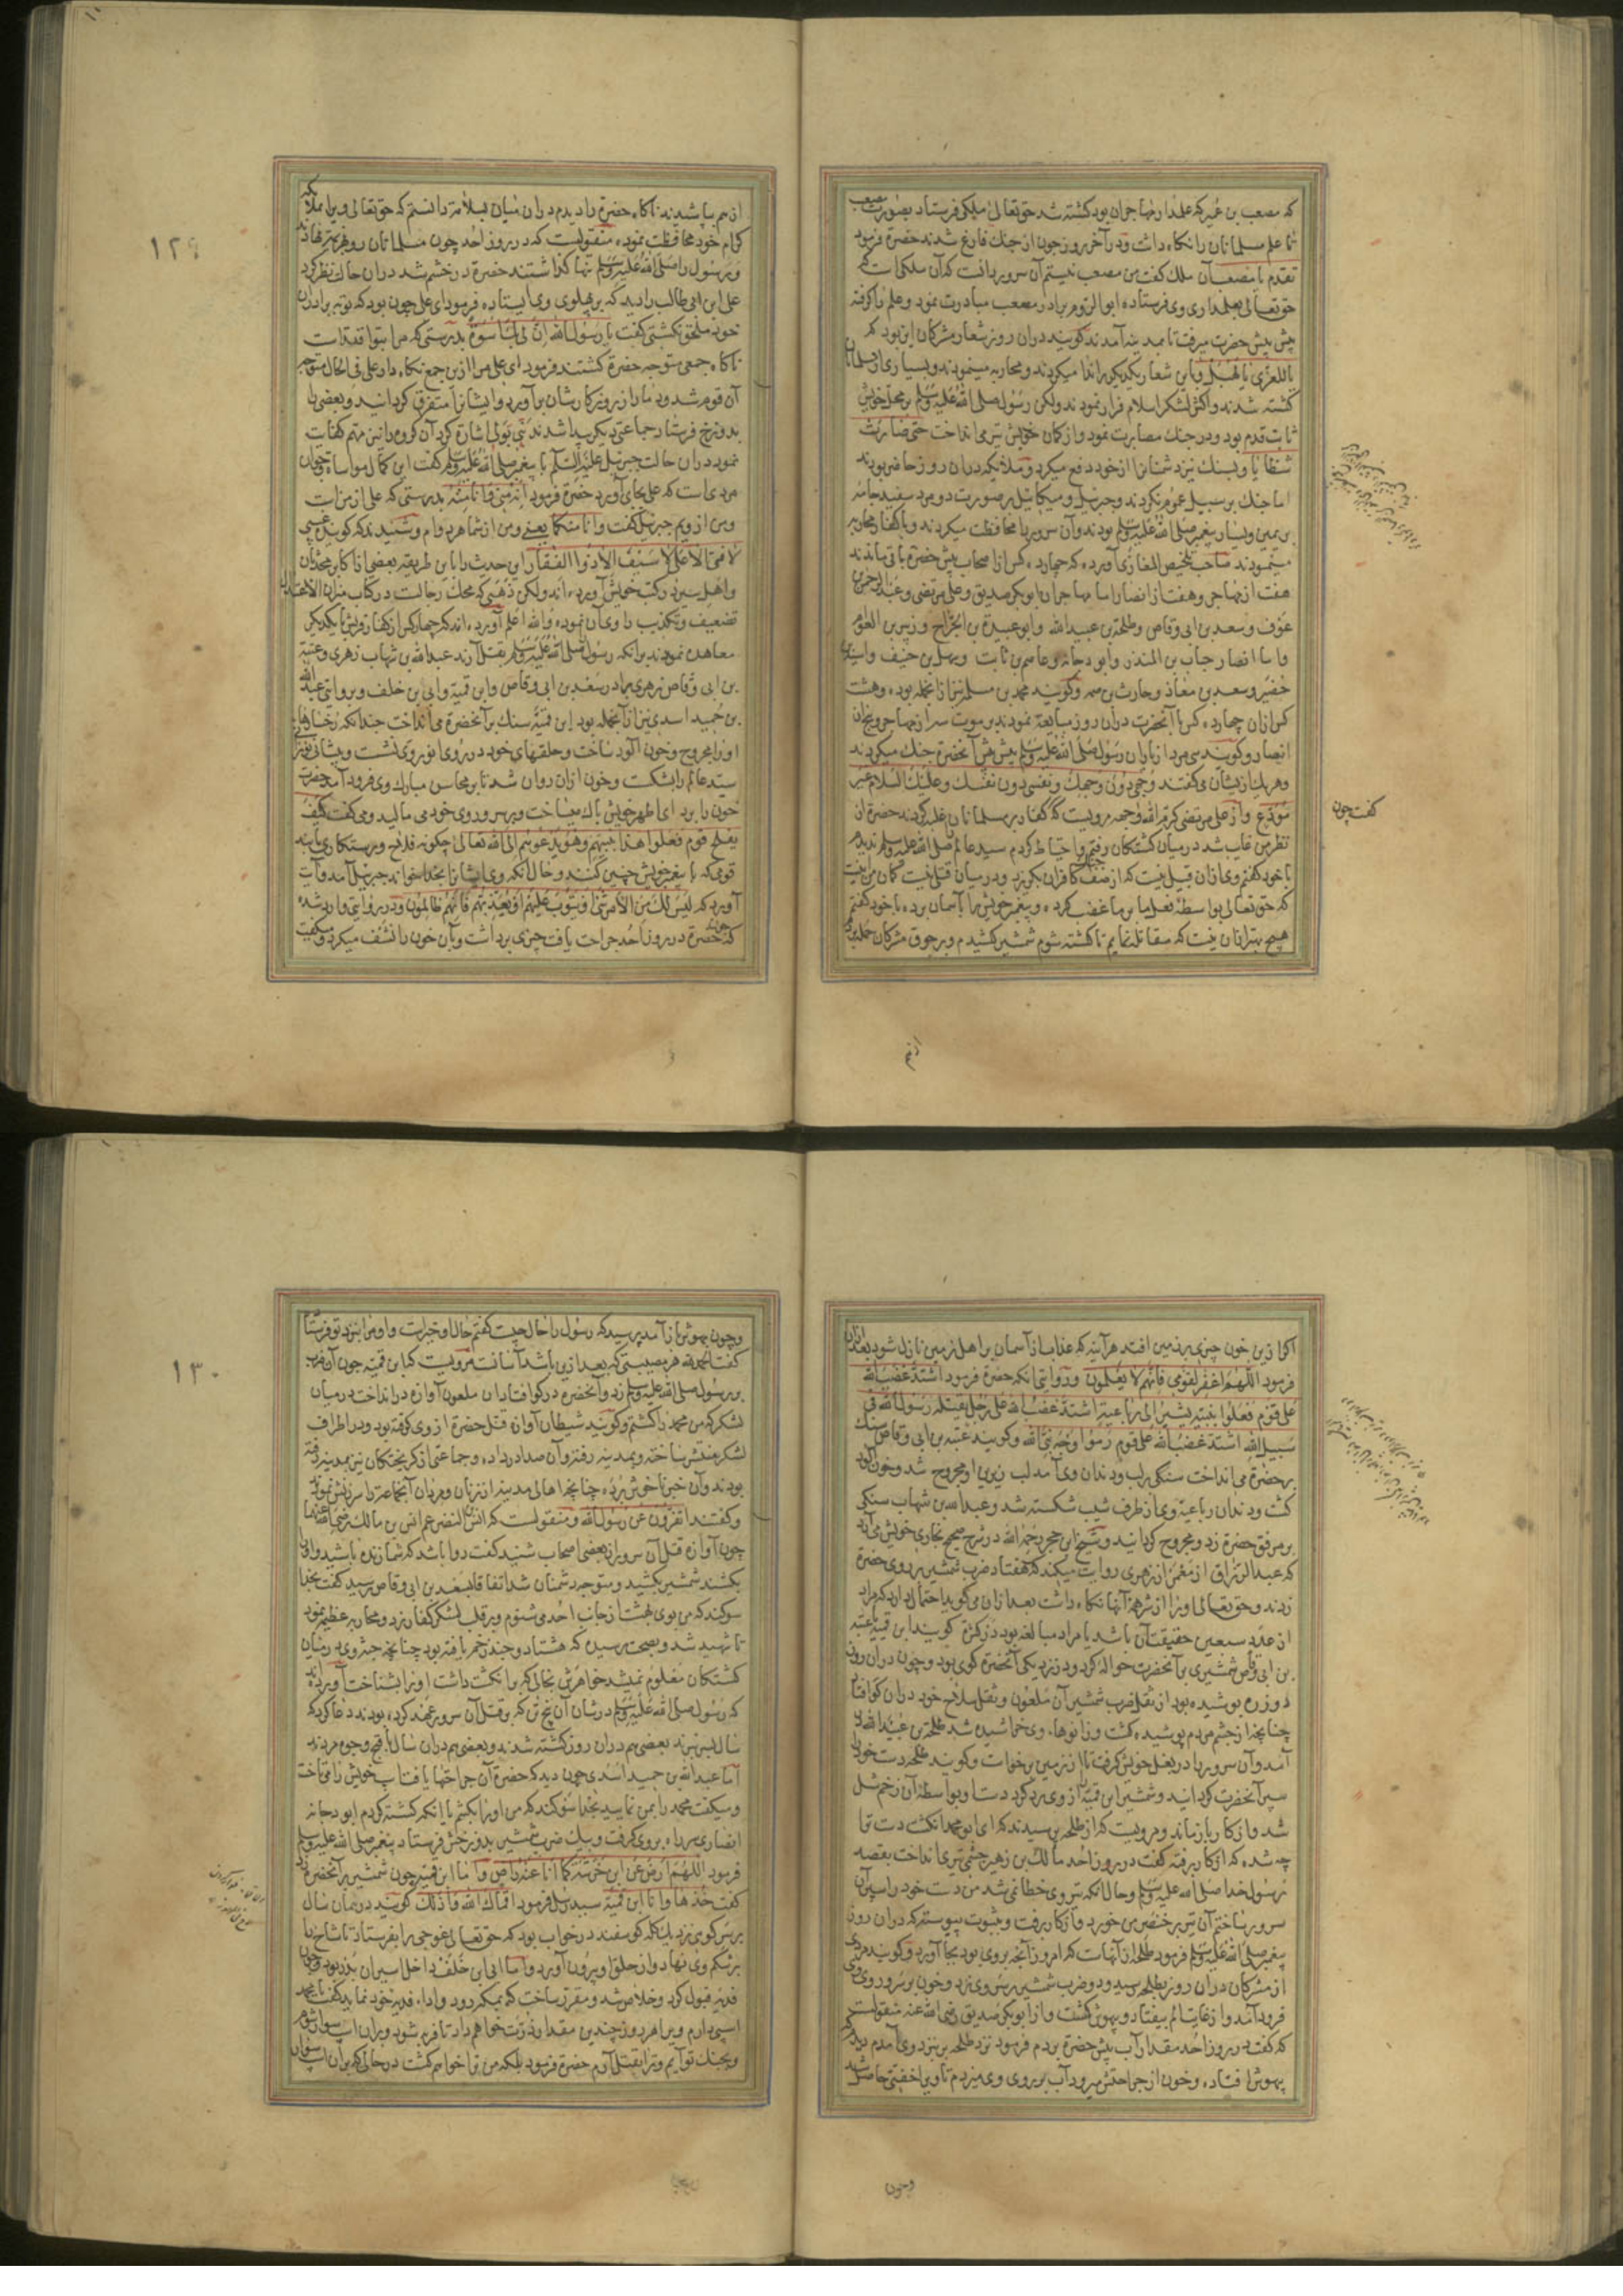 که مصعب بن عمیر که علمدار مهاجران بود کشته شد حق تعالی ملکی فرستاد بصورت مصعب
تا علم مسلمانان را نکاه داشت ودر آخر روز چون از جنك فارغ شدند حضرة فرمود
تقدم یا مصعب آن ملك کفت من مصعب نیستم آن سرور دانست که آن ملکی است که
حق تعالی بعلمداری وی فرستاده ابو الروم برادر مصعب مبادرت نمود وعلم را کرفته
پیش پیش حضرت میرفت تا بمدینه آمدند کویند در آن روز شعار مشرکان این بود که
یا للعزی یا لهبل وباین شعار یکدیکر را ندا میکردند ومحاربه مینمودند وبسیاری از مسلمانان
کشته شدند واکثر لشکر اسلام فرار نمودند ولکن رسول صلی الله علیه وسلم بر محل خویش
ثابت قدم بود ودر جنك مصابرت نمود واز کمان خویش تیر می انداخت حتی صارت
شظایا وبسنك نیز دشمنانرا از خود دفع میکرد وملائکه در آن روز حاضر بودند
اما جنك بر سبیل عموم نکردند وجبرئیل ومیکائیل بر صورت دو مرد سفید جامه
بر یمین ویسار پیغمبر صلی الله علیه وسلم بودند وآن سرور را محافظت میکردند وبا کفار محاربه
مینمودند صاحب تلخیص المغازی آورده که چهارده کس از اصحاب پیش حضرة باقی ماندند
هفت از مهاجر وهفت از انصار اما مهاجران ابو بکر صدیق وعلی مرتضی وعبد الرحمن
عوف وسعد بن ابی وقاص وطلحة بن عبید الله وابو عبیدة بن الجراح وزبیر بن العوام
واما انصار حباب بن المنذر وابو دجانه وعاصم بن ثابت وسهل بن حنیف واسید بن
حضیر وسعد بن معاذ وحارث بن صمه وکویند محمد بن مسلمه نیز از انجمله بوده وهشت
کس از ان چهارده کس با آنحضرت در آن روز مبایعة نمودند بر موت سه از مهاجر وپنج از
انصار وکویند سی مرد از یاران رسول صلی الله علیه وسلم پیش پیش آنحضرة جنك میکردند
وهر یك از یشان میکفتند وجهی دون وجهك ونفسی دون نفسك وعلیك السلام غیر
مودع واز علی مرتضی کرم الله وجهه مرویست که کفار بر مسلمانان غلبه کردند حضرة از
نظر من غایب شد در میان کشتکان رفتم واحتیاط کردم سید عالم صلی الله علیه وسلم ندیدم
با خود کفتم وی از ان قبیل نیست که از صف کافران بکریزد ودر میان قتلی نیست کمان من اینست
که حق تعالی بواسطه فعل ما بر ما غضب کرده وپیغمبر خویش را بآسمان برده با خود کفتم
هیچ بهتر از ان نیست که مقاتله نمایم تا کشته شوم شمشیر کشیدم وبر جوق مشرکان حمله بردم
کفت چون
از هم
از هم بپاشیدند ناکاه حضرة را دیدم در آن میان بسلامة دانستم که حق تعالی ویرا بملائکه
کرام خود محافظت نموده منقولست که در روز احد چون مسلمانان رو بهزیمت نهادند
ورسول را صلی الله علیه وسلم تنها کذاشتند حضرة در خشم شد در آن حال نظر کرد
علی ابن ابی طالب را دید که بر پهلوی وی ایستاده فرمود ای علی چون بود که تو به برادران
خود ملحق نکشتی کفت یا رسول الله ان لی بك اسوة بدرستی که مرا بتو اقتداست
ناکاه جمعی متوجه حضرة کشتند فرمود ای علی مرا از ین جمع نکاه دار علی فی الحال متوجه
آن قوم شد ودمار از روزکارشان بر آورد وایشانرا متفرق کردانید وبعضی را
بدوزخ فرستاد جماعتی دیکر پیدا شدند نبی بولی اشارة کرد آن کروه را نیز مهم کفایت
نمود در آن حالت جبرئیل علیه السلام با پیغمبر صلی الله علیه وسلم کفت این کمال مواساة وجوان
مردی است که علی بجای آورد حضرة فرمود انه منی وانا منه بدرستی که علی از من است
ومن از ویم جبرئیل کفت وانا منکما یعنی ومن از شما هر دوام وشنیدند که کوینده میکفت
لا فتی الا علی لا سیف الا ذو الفقار این حدیث را باین طریقه بعضی از اکابر محدثان
واهل سیر در کتب خویش آورده اند ولکن ذهبی که محك رجالست در کتاب میزان الاعتدال
تضعیف وتکذیب راوی آن نموده والله اعلم آورده اند که چهار کس از کفار قریش با یکدیکر
معاهده نمودند بر آنکه رسول صلی الله علیه وسلم بقتل آرند عبد الله بن شهاب زهری وعتبة
بن ابی وقاص زهری برادر سعد بن ابی وقاص وابن قمیة وابی بن خلف وبروایتی عبد الله
بن حمید اسدی نیز از انجمله بود ابن قمیة سنك بر آنحضرة می انداخت چندانکه رخسار
اورا مجروح وخون آلود ساخت وحلقهای خود در روی نو روی نشست وپیشانی
سید عالم را بشکست وخون از ان روان شد تا بر محاسن مبارك وی فرود آمد حضرت
خون را بردای اطهر خویش پاك میساخت وبر سر وروی خود می مالید ومی کفت کیف
یفلح قوم فعلوا هذا بنبیهم وهو یدعوهم الی الله تعالی چکونه فلاح ورستکاری یابند
قومی که با پیغمبر خویش چنین کنند وحال آنکه وی ایشانرا بخدا میخواند جبرئیل آمد وآیت
آورد که لیس لك من الأمر شئ او یتوب علیهم او یعذبهم فانهم ظالمون ودر روایتی وارد شده
که چون حضرة در روز احد جراحت یافت چیزی برداشت وبآن خون را نشف میکرد ومیکفت
١٢٩
اکر از ین خون چیزی بر زمین افتد هر آینه که عذاب از آسمان بر اهل زمین نازل شود بعد از ان
فرمود اللهم اغفر لقومی فانهم لا یعلمون ودر وایتی آنکه حضرة فرمود اشتد غضب الله
علی قوم فعلوا بنبیه یشیر الی رباعیته اشتد غضب الله علی رجل یقتله رسول الله فی
سبیل الله اشتد غضب الله علی قوم رموا وجه نبی الله وکویند عتبه بن ابی وقاص سنك
بر حضرة می انداخت سنکی بر لب ودندان وی آمد لب زیرین او مجروح شد وخون آلود
کشت ودندان رباعیه وی از طرف شیب شکسته شد وعبد الله بن شهاب سنکی
بر مرفق حضرة زد ومجروح کردانید وشیخ ابن حجر رحمه الله در شرح صحیح بخاری خویش می آرد
که عبد الرزاق از معمر از زهری روایت میکند که هفتاد ضرب شمشیر بر روی حضرة
زدند وحق تعالی اورا از شر همه آنها نکاه داشت بعد از ان می کوید احتمال دارد که مراد
از عدد سبعین حقیقت آن باشد یا مراد مبالغه بود در کثرة کویند ابن قمیة یا عتبه
بن ابی وقاص شمشیری بر آنحضرت حواله کرد ودر نزدیکی آنحضرة کوی بود وچون در آن روز
دو زره پوشیده بود از ثقل ضرب شمشیر آن ملعون وثقل سلاح خود در ان کو افتاد
چنانچه از چشم مردم پوشیده کشت وزانوهای وی خراشیده شد طلحة بن عبید الله
آمد وآن سرور را در بغل خویش کرفت تا از زمین بر خاست وکویند طلحه دست خود را
سپر آنحضرت کردانید وشمشیر ابن قمیه را از وی رد کرد دست او بواسطه آن زخم شل
شد واز کار باز ماند ومرویست که از طلحه پرسیدند که ای ابو محمد انکشت دست ترا
چه شده که از کار رفته کفت در روز احد مالك بن زهیر جشمی تیری انداخت بقصد
رسول خدا صلی الله علیه وسلم وحال آنکه تیر وی خطا نمی شد من دست خود را سپر آن
سرور ساختم آن تیر بر خنصر من خورد واز کار برفت وبثبوت پیوسته که در ان روز
پیغمبر صلی الله علیه وسلم فرمود طلحه از آنهاست که امروز آنچه بر وی بود بجا آورد وکویند مردی
از مشرکان در ان روز بطلحه رسید ودو ضرب شمشیر بر سر وی زد وخون بر سر وروی وی
فرود آمد واز غایت الم بیفتاد وبیهوش کشت واز ابو بکر صدیق رضی الله عنه منقولست
که کفت در روز احد مقدار آب پیش حضرة بردم فرمود نزد طلحه بر بنزد وی آمدم دیدم
بیهوش افتاده وخون از جراحتش میرود آب بر روی وی میزدم تا ویرا خفتی حاصل شد
وچون
وچون بهوش باز آمد پرسید که رسول را حال چیست کفتم حال او خیر است واو مرا بنزد تو فرستاد
کفت الحمد لله هر مصیبتی که بعد از ین باشد آسانست مرویست که ابن قمیة چون آن ضرب
بر رسول صلی الله علیه وسلم زد وآنحضرة در کو افتاد ان ملعون آوازه در انداخت در میان
لشکر که من محمد را کشتم وکویند شیطان آوازه قتل حضرة از وی کوفته بود ودر اطراف
لشکر منتشر ساخته وبمدینه رفته وآن صدا در داده وجماعتی از کریختکان نیز بمدینه رفته
بودند وآن خبر ناخوش برده چنانچه اهالی مدینه از زنان ومردان آنجماعة را سرزنش نمودند
وکفتند اتفرون عن رسول الله ومنقولست که انس بن النضر عم انس بن مالك رضی الله عنهما
چون آوازه قتل آن سرور از بعضی اصحاب شنید کفت روا باشد که شما زنده باشید واورا
بکشند شمشیر بکشید ومتوجه دشمنان شد اتفاقا بسعد بن ابی وقاص رسید کفت بخدا
سوکند که من بوی بهشت از جانب احد می شنوم وبر قلب لشکر کفار زد ومحاربه عظیم نمود
تا شهید شد وبصحت رسیده که هشتاد وچند زخم یافته بود چنانچه جثه وی در میان
کشتکان معلوم نمیشد خواهرش بخالی که بر انکشت داشت اورا بشناخت آورده اند
که رسول صلی الله علیه وسلم در شان آن پنج تن که بر قتل آن سرور عهد کرده بودند دعا کرد که
سال بسر نبرند بعضی هم در ان روز کشته شدند وبعضی هم در ان سال باقبح وجوه مردند
اما عبد الله بن حمید اسدی چون دید که حضرة آن جراحتها یافت اسب خویش را می تاخت
ومیکفت محمد را بمن نمایید بخدا سوکند که من اورا بکشم یا آنکه کشته کردم ابو دجانه
انصاری سر راه بر وی کرفت وبیك ضرب شمشیر بدوزخش فرستاد پیغمبر صلی الله علیه وسلم
فرمود اللهم ارض عن ابن خرشة کما انا عنه راض واما ابن قمیه چون شمشیر بر آنحضرة زد
کفت خذها وانا ابن قمیة سید رسل فرمود اقماك الله واذلك کویند در همان سال
بر سر کوهی نزدیك کله کوسفند در خواب بود که حق تعالی غوجی را بفرستاد تا شاخ را
بر شکم وی نهاد واز حلق او بیرون آورد واما ابی ابن خلف داخل اسیران بدر بود وچون
فدیه قبول کرد وخلاص شد ومقرر ساخت که بمکه رود وادای فدیه خود نماید کفت یا محمد
اسبی دارم ویرا هر روز چندین مقدار ذرت خواهم داد تا فربه شود وبر ان اسب سوار شوم
وبجنك تو آیم وترا بقتل آرم حضرة فرمود بلکه من ترا خواهم کشت در حالی که بر آن اسب سوار
١٣٠